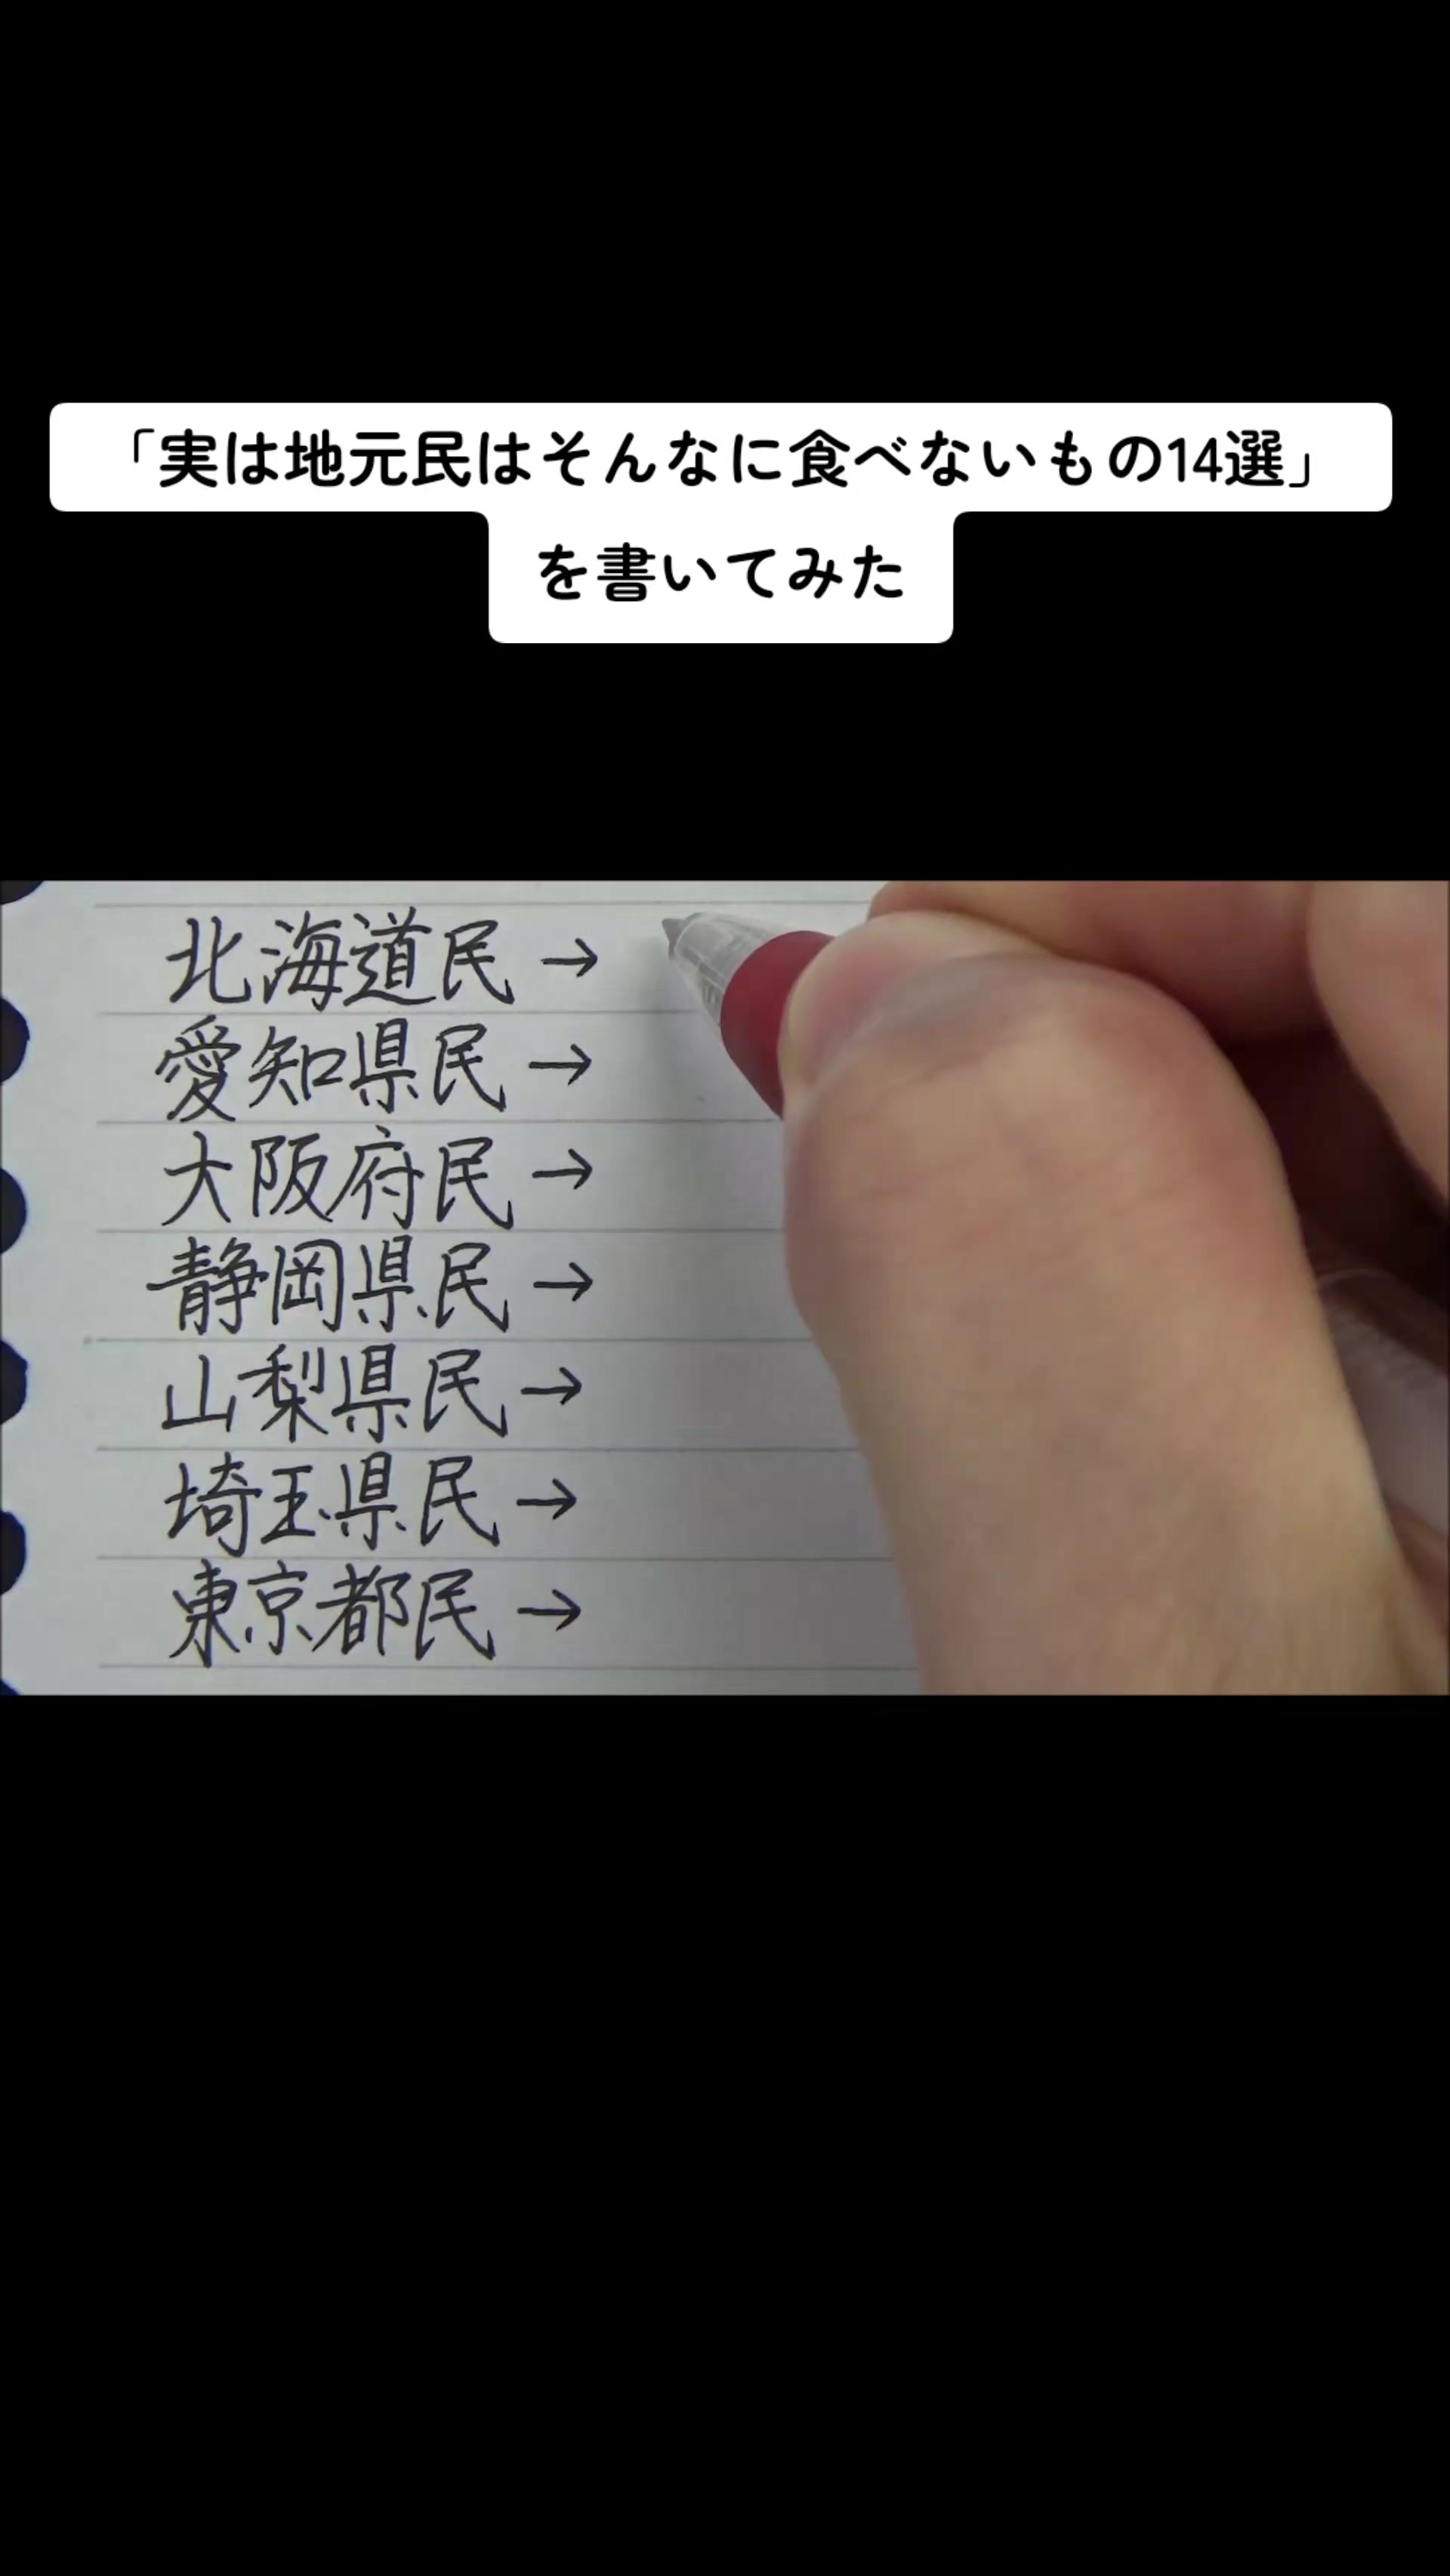 「実は地元民はそんなに食べないもの14選」
を書いてみた
北海道民→
愛知県民→
大阪府民→
静岡県民→
山梨県民→
埼玉県民→
東京都民→